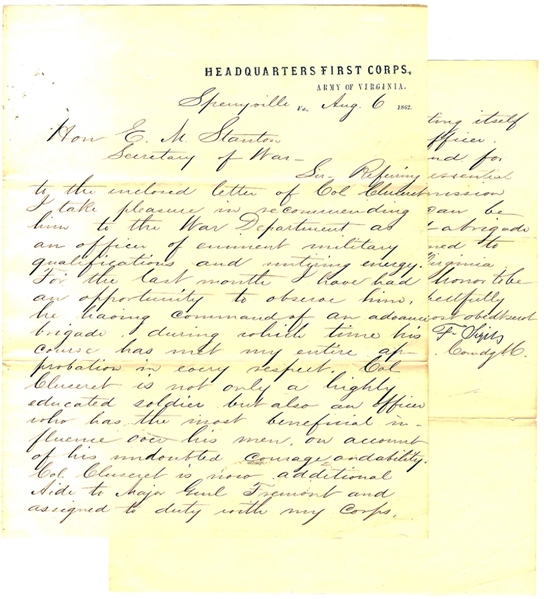 HEADQUARTERS FIRST CORPS,
ARMY OF VIRGINIA.
Sperryville Va. Aug. 6 1862.
Hon E. M. Stanton
Secretary of War—
Sir Refering
to the enclosed letter of Col Cluseret
I take pleasure in recommending
him to the War Department as
an officer of eminent military
qualifications and untiring energy.
For the last month I have had
an opportunity to observe him,
he having command of an advance
brigade, during which time his
course has met my entire ap-
probation in every respect. Col
Cluseret is not only a highly
educated soldier but also an officer
who has the most beneficial in-
fluence over his men, on account
of his undoubted courage and ability.
Col. Cluseret is now additional
Aide to Major Genl Fremont and
assigned to duty with my Corps.
ting itself
officer.
and for
essential
mission
can be
brigade
ned to
Virginia
honor to be
pectfully
most obedt servt
F. Sigel
Comdg